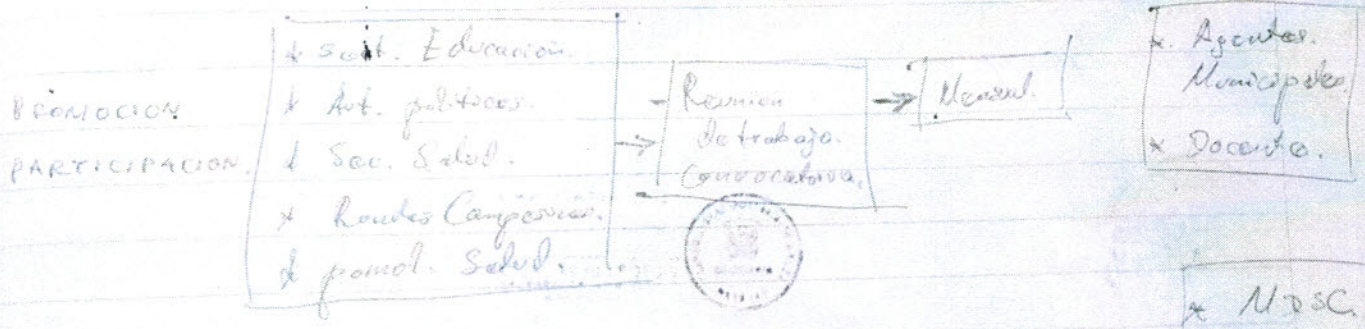 PROMOCION
PARTICIPACION.
* Sect. Educación.
* Aut. políticas.
* Sec. Salud.
* Rondas Campesinas.
* promot. Salud.
Reunión
de trabajo.
Convocatoria.
Mensual.
* Agentes.
Municipales.
* Docentes.
* MDSC.